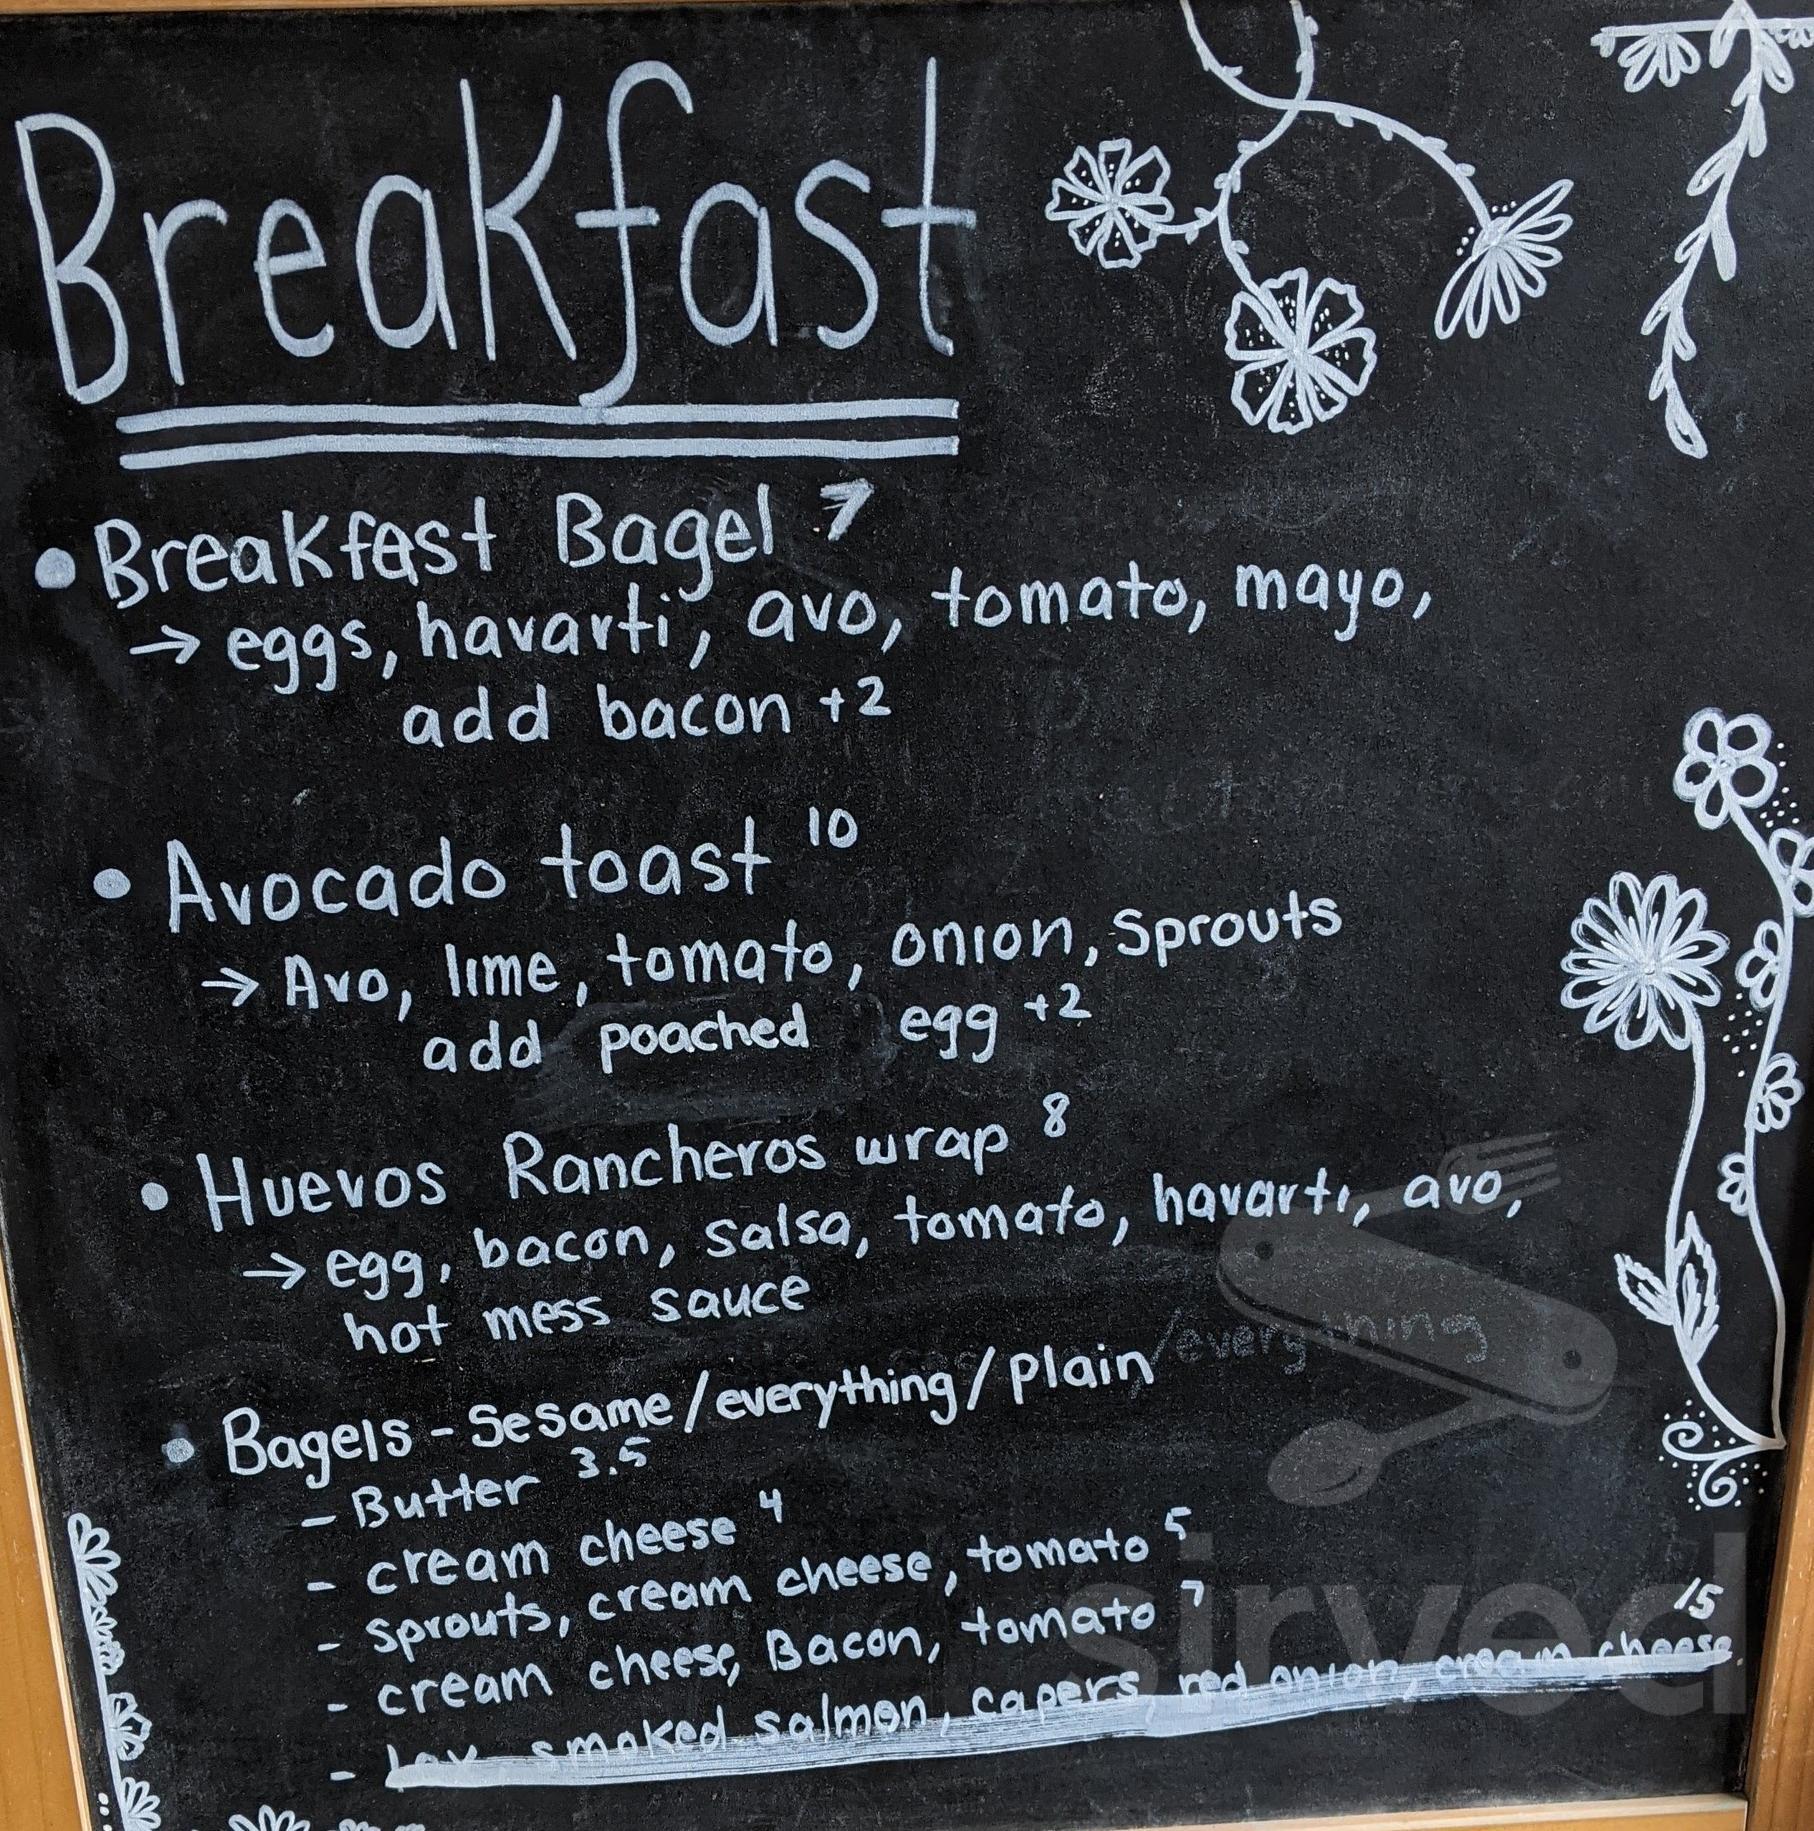 Breakfast
• Breakfast Bagel 7
→ eggs, havarti, avo, tomato, mayo,
add bacon +2
• Avocado toast 10
→ Avo, lime, tomato, onion, sprouts
add poached egg +2
• Huevos Rancheros wrap 8
→ egg, bacon, salsa, tomato, havarti, avo,
hot mess sauce
• Bagels - Sesame/everything/plain /everything
- Butter 3.5
- cream cheese 4
- sprouts, cream cheese, tomato 5
- cream cheese, Bacon, tomato 7
- lox, smoked salmon, capers, red onion, cream cheese 15
sirved